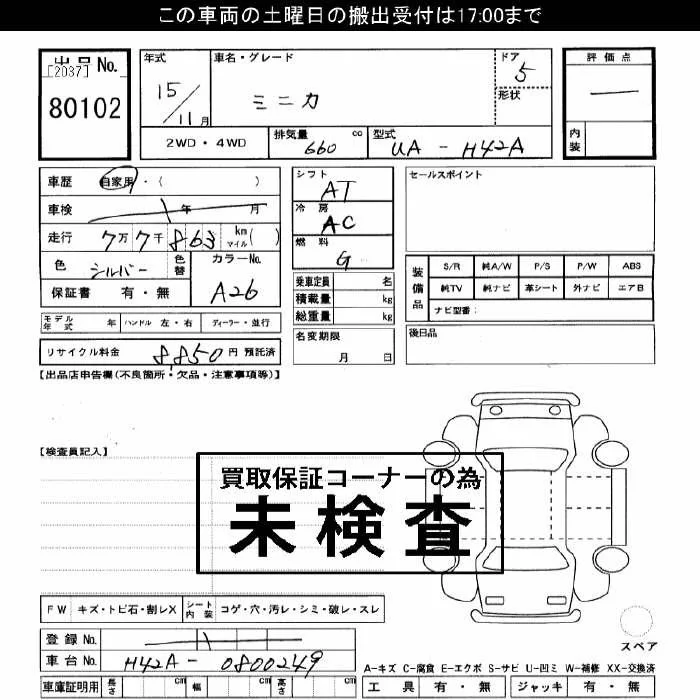 この車両の土曜日の搬出受付は17:00まで
出品No.
[2037]
80102
年式
15/11月
車名・グレード
ミニカ
ドア
5
形状
評価点
―
内装
2WD・4WD
排気量 660 cc
型式 UA-H42A
車歴 自家用・( )
車検 年 月
走行 7万7千863 km マイル( )
色 シルバー 色替
カラーNo. A26
保証書 有・無
モデル年式 年 ハンドル 左・右 ディーラー・並行
リサイクル料金 8850円 預託済
シフト AT
冷房 AC
燃料 G
乗車定員 名
積載量 kg
総重量 kg
名変期限
月 日
セールスポイント
装備品
S/R 純A/W P/S P/W ABS
純TV 純ナビ 革シート 外ナビ エアB
ナビ型番:
後日品
【出品店申告欄(不良箇所・欠品・注意事項等)】
【検査員記入】
買取保証コーナーの為
未検査
FW キズ・トビ石・割レX シート内装 コゲ・穴・汚レ・シミ・破レ・スレ
スペア
登録No.
車台No. H42A-0800249
A-キズ C-腐食 E-エクボ S-サビ U-凹ミ W-補修 XX-交換済
車庫証明用 長さ cm 幅 cm 高さ cm
工具 有・無 ジャッキ 有・無